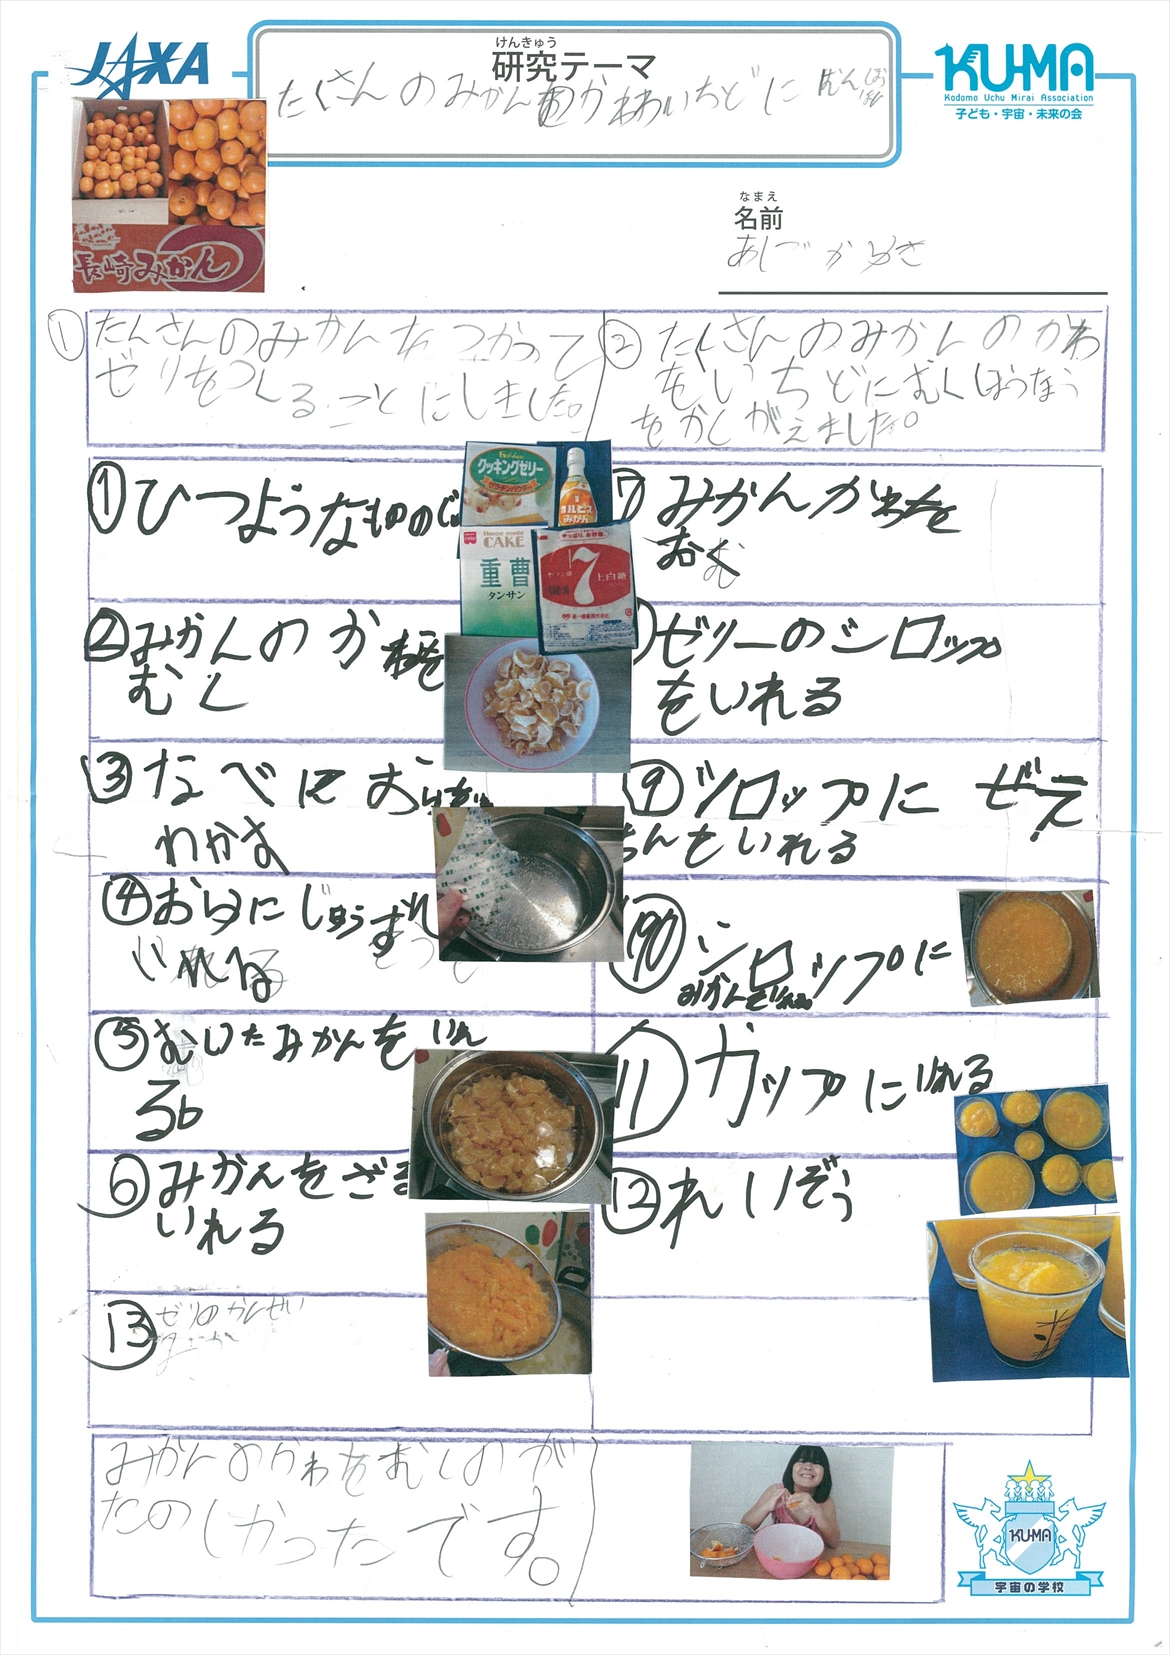 JAXA
けんきゅう
研究テーマ
たくさんのみかん
いちどに
KU-MA
Kodomo Uchu Mirai Association
子ども・宇宙・未来の会
長崎みかん
なまえ
名前
① たくさんのみかんをつかって
ゼリをつくることにしました。
② たくさんのみかんのかわ
をいちどにむくほうなう
をかしがえました。
①ひつようなもの
クッキングゼリー
ゼラチンパウダー
カルピス
みかん
Home made
CAKE
重曹
タンサン
7
上白糖
②みかんのかわを
むく
③なべに
わかす
④おゆにじゅう
いれる
⑤むいたみかんをいれ
る
⑥みかんをざ
いれる
7 みかんかわを
おむ
ゼリーのシロップ
をいれる
⑨シロップに ぜえ
ちんをいれる
⑩シロップに
⑪カップにいれる
⑫れいぞう
⑬ゼリのかんせい
みかんのかわをむくのが
たのしかったです。
KU-MA
宇宙の学校